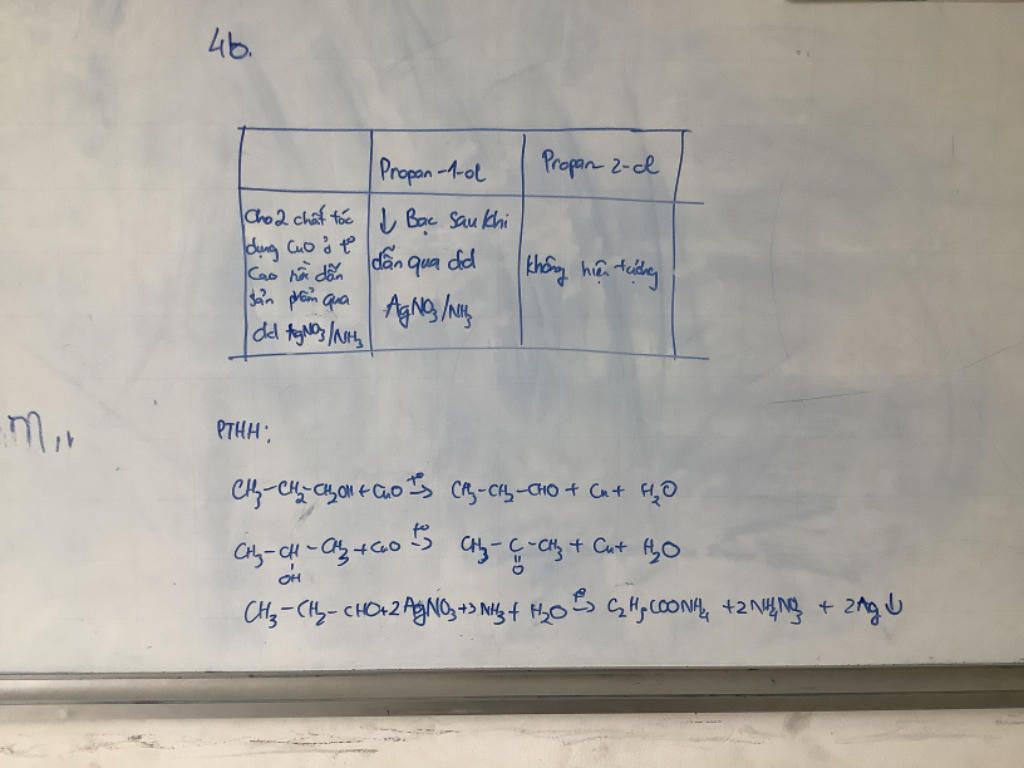 4b.
Propan-1-ol
Propan-2-ol
Cho 2 chất tác
dụng CuO ở t°
cao rồi dẫn
sản phẩm qua
dd AgNO3/NH3
↓ Bạc sau khi
dẫn qua dd
AgNO3/NH3
không hiện tượng
PTHH:
CH3-CH2-CH2OH + CuO t° → CH3-CH2-CHO + Cu + H2O
CH3-CH-CH3 + CuO t° → CH3-C-CH3 + Cu + H2O
OH O
CH3-CH2-CHO + 2AgNO3 + 3NH3 + H2O t° → C2H5COONH4 + 2NH4NO3 + 2Ag ↓